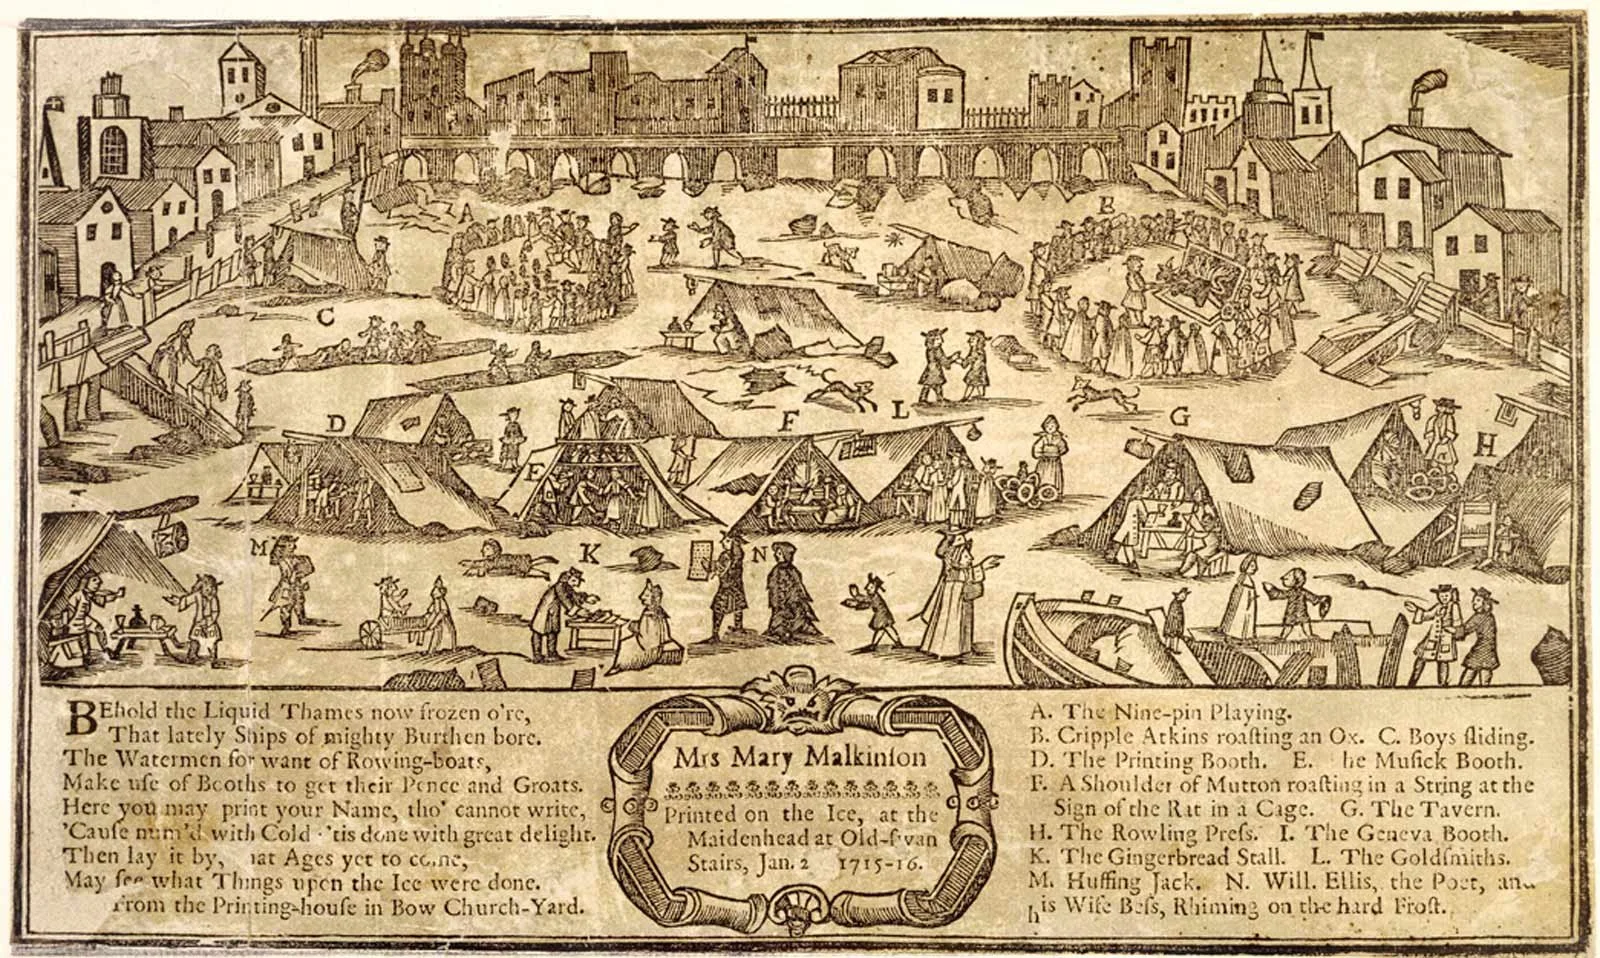 A
E
C
L
D
F
G
E
H
M
K
N
BEhold the Liquid Thames now frozen o're,
That lately Ships of mighty Burthen bore.
The Watermen for want of Rowing-boats,
Make uſe of Booths to get their Pence and Groats.
Here you may print your Name, tho' cannot write,
'Cauſe num'd with Cold 'tis done with great delight.
Then lay it by, Ages yet to come,
May ſee what Things upon the Ice were done.
From the Printing-houſe in Bow Church-Yard.
Mrs Mary Malkinſon
Printed on the Ice, at the
Maidenhead at Old-ſwan
Stairs, Jan. 2 1715-16.
A. The Nine-pin Playing.
B. Cripple Atkins roaſting an Ox. C. Boys ſliding.
D. The Printing Booth. E. he Muſick Booth.
F. A Shoulder of Mutton roaſting in a String at the
Sign of the Rat in a Cage. G. The Tavern.
H. The Rowling Preſs. I. The Geneva Booth.
K. The Gingerbread Stall. L. The Goldſmiths.
M. Huffing Jack. N. Will. Ellis, the Poet, and
his Wife Beſs, Rhiming on the hard Froſt.